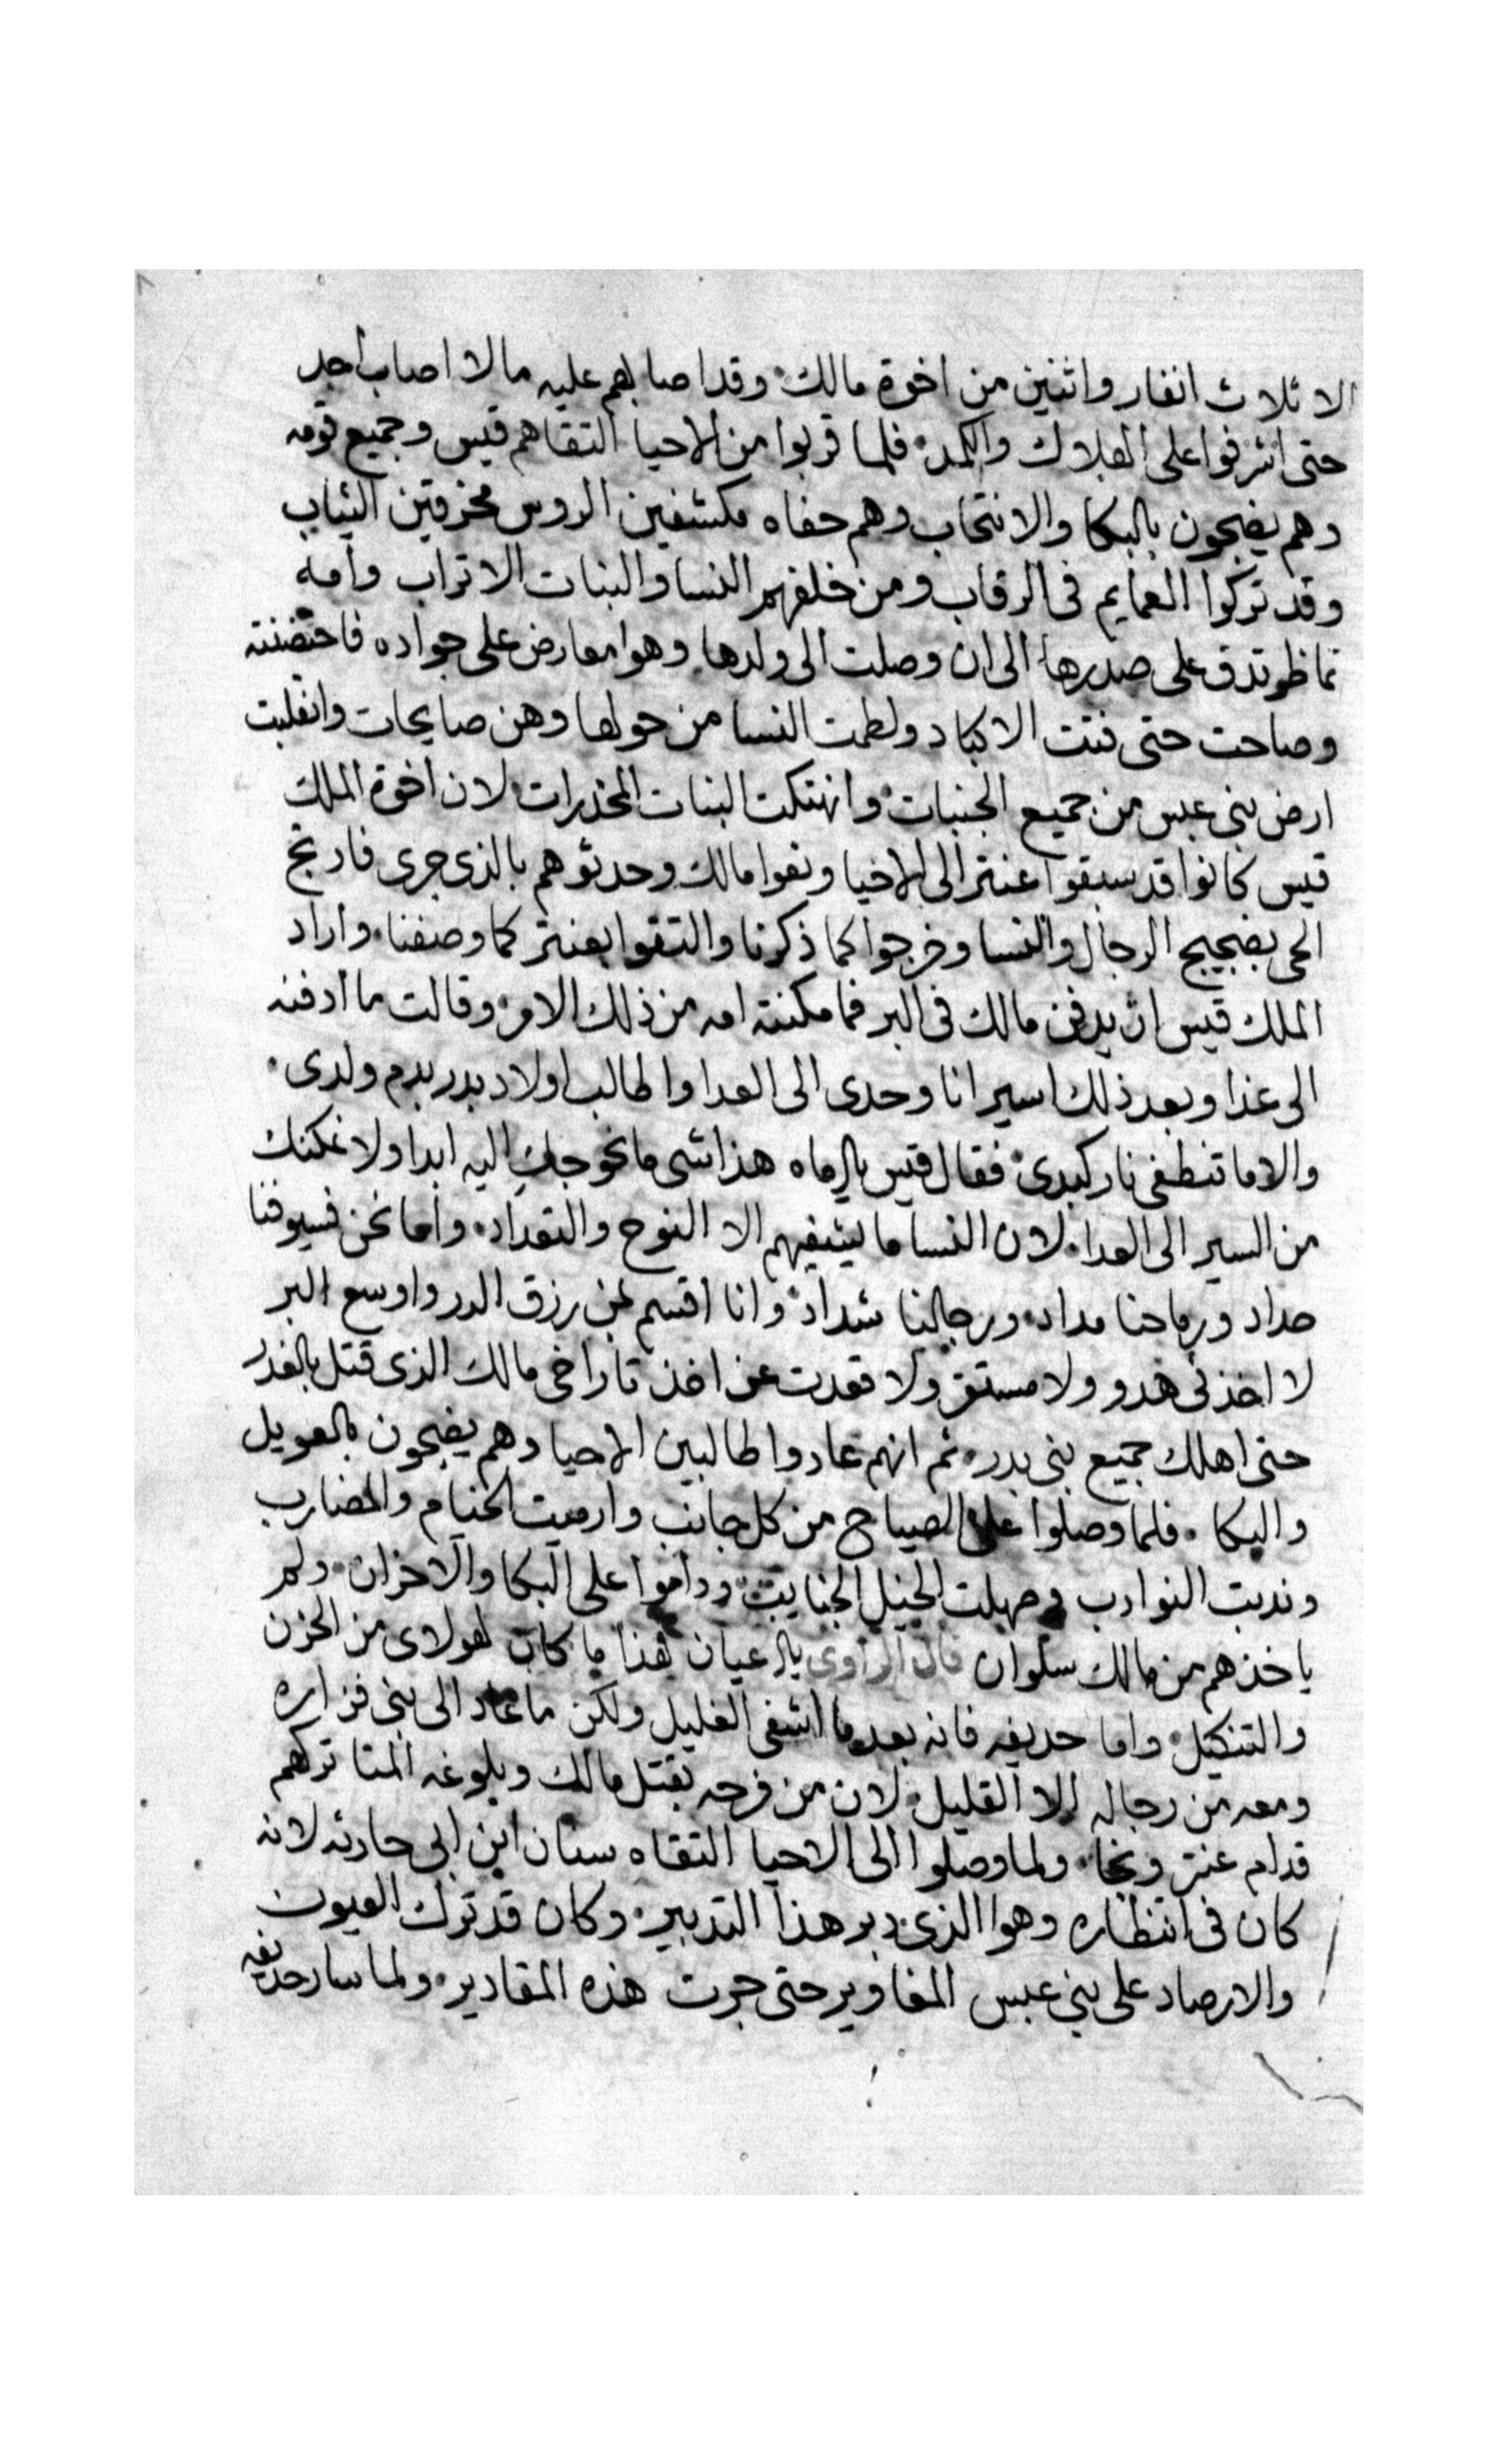 الا ثلاث انفار واثنين من اخوة مالك وقد اصابهم عليه مالا اصاب احد
حتى اشرفوا على الهلاك والكمد فلما قربوا من الاحيا التقاهم قيس وجميع قومه
وهم يضجون بالبكا والانتحاب وهم حفاه مكشفين الروس مخرقين الثياب
وقد تركوا العمايم فى الرقاب ومن خلفهم النسا والبنات الاتراب وامه
تماظر تدق على صدرها الى ان وصلت الى ولدها وهوا معارض على جواده فاحتضنته
وصاحت حتى فتت الاكباد ولطمت النسا من حولها وهن صايحات وانقلبت
ارض بنى عبس من جميع الجنبات وانهتكت البنات المخدرات لان اخوة الملك
قيس كانوا قد سبقوا عنتر الى الاحيا ونعوا مالك وحدثوهم بالذى جرى فارتج
الحى بضجيج الرجال والنسا وخرجوا كما ذكرنا والتقوا بعنتر كما وصفنا واراد
الملك قيس ان يدفن مالك فى البر فما مكنته امه من ذلك الامر وقالت ما ادفنه
الى غدا وبعد ذلك اسير انا وحدى الى العدا واطالب اولاد بدر بدم ولدى
والا ما تنطفى نار كبدى فقال قيس يالاماه هذا شى ما نحوجك اليه ابدا ولا نمكنك
من السير الى العدا لان النسا ما يشفيهم الا النوح والتعداد واما نحن فسيوفنا
حداد ورماحنا مداد ورجالنا شداد وانا اقسم بمن رزق الدر واوسع البر
لا اخذنى هدو ولا مستقر ولا قعدت عن اخذ تار اخى مالك الذى قتل بالغدر
حتى اهلك جميع بنى بدر ثم انهم عادوا طالبين الاحيا وهم يضجون بالعويل
والبكا فلما وصلوا على الصياح من كل جانب وارميت الخيام والمضارب
وندبت النوادب وصهلت الخيل الجنايب وداموا على البكا والاحزان ولم
ياخذهم من مالك سلوان قال الراوى يالاعيان هذا ما كان لهولاى من الحزن
والتنكيل واما حديفه فانه بعد ما اشفى الغليل ولكن ما عاد الى بنى فزاره
ومعه من رجاله الا القليل لان من فرحه بقتل مالك وبلوغه المنا تركهم
قدام عنتر ونجا ولما وصلوا الى الاحيا التقاه سنان ابن ابى حارثه لانه
كان فى انتظاره وهوا الذى دبر هذا التدبير وكان قد ترك العيون
والارصاد على بنى عبس المغاوير حتى جرت هذه المقادير ولما سار حديفه